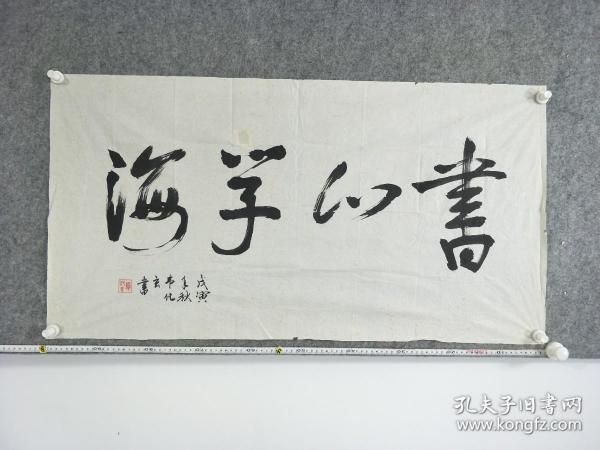 書山学海
戊寅
年秋
书
孔夫子旧书网
www.kongfz.com